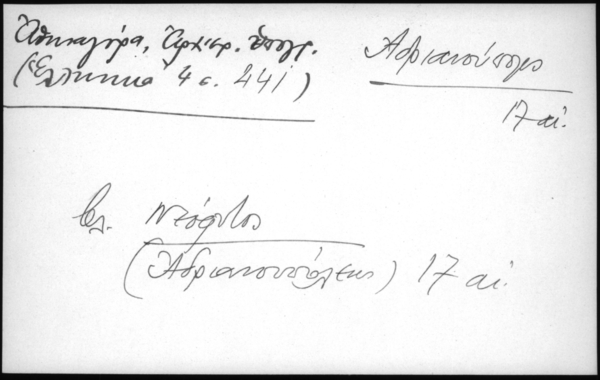 Ἀθηναγόρα, Ἀρχιερ. ὑπογρ.
(Ἑλληνικά 4 σ. 441)
Ἀδριανούπολις
17 αἰ.
βλ. Νεόφυτος
(Ἀδριανουπόλεως) 17 αἰ.